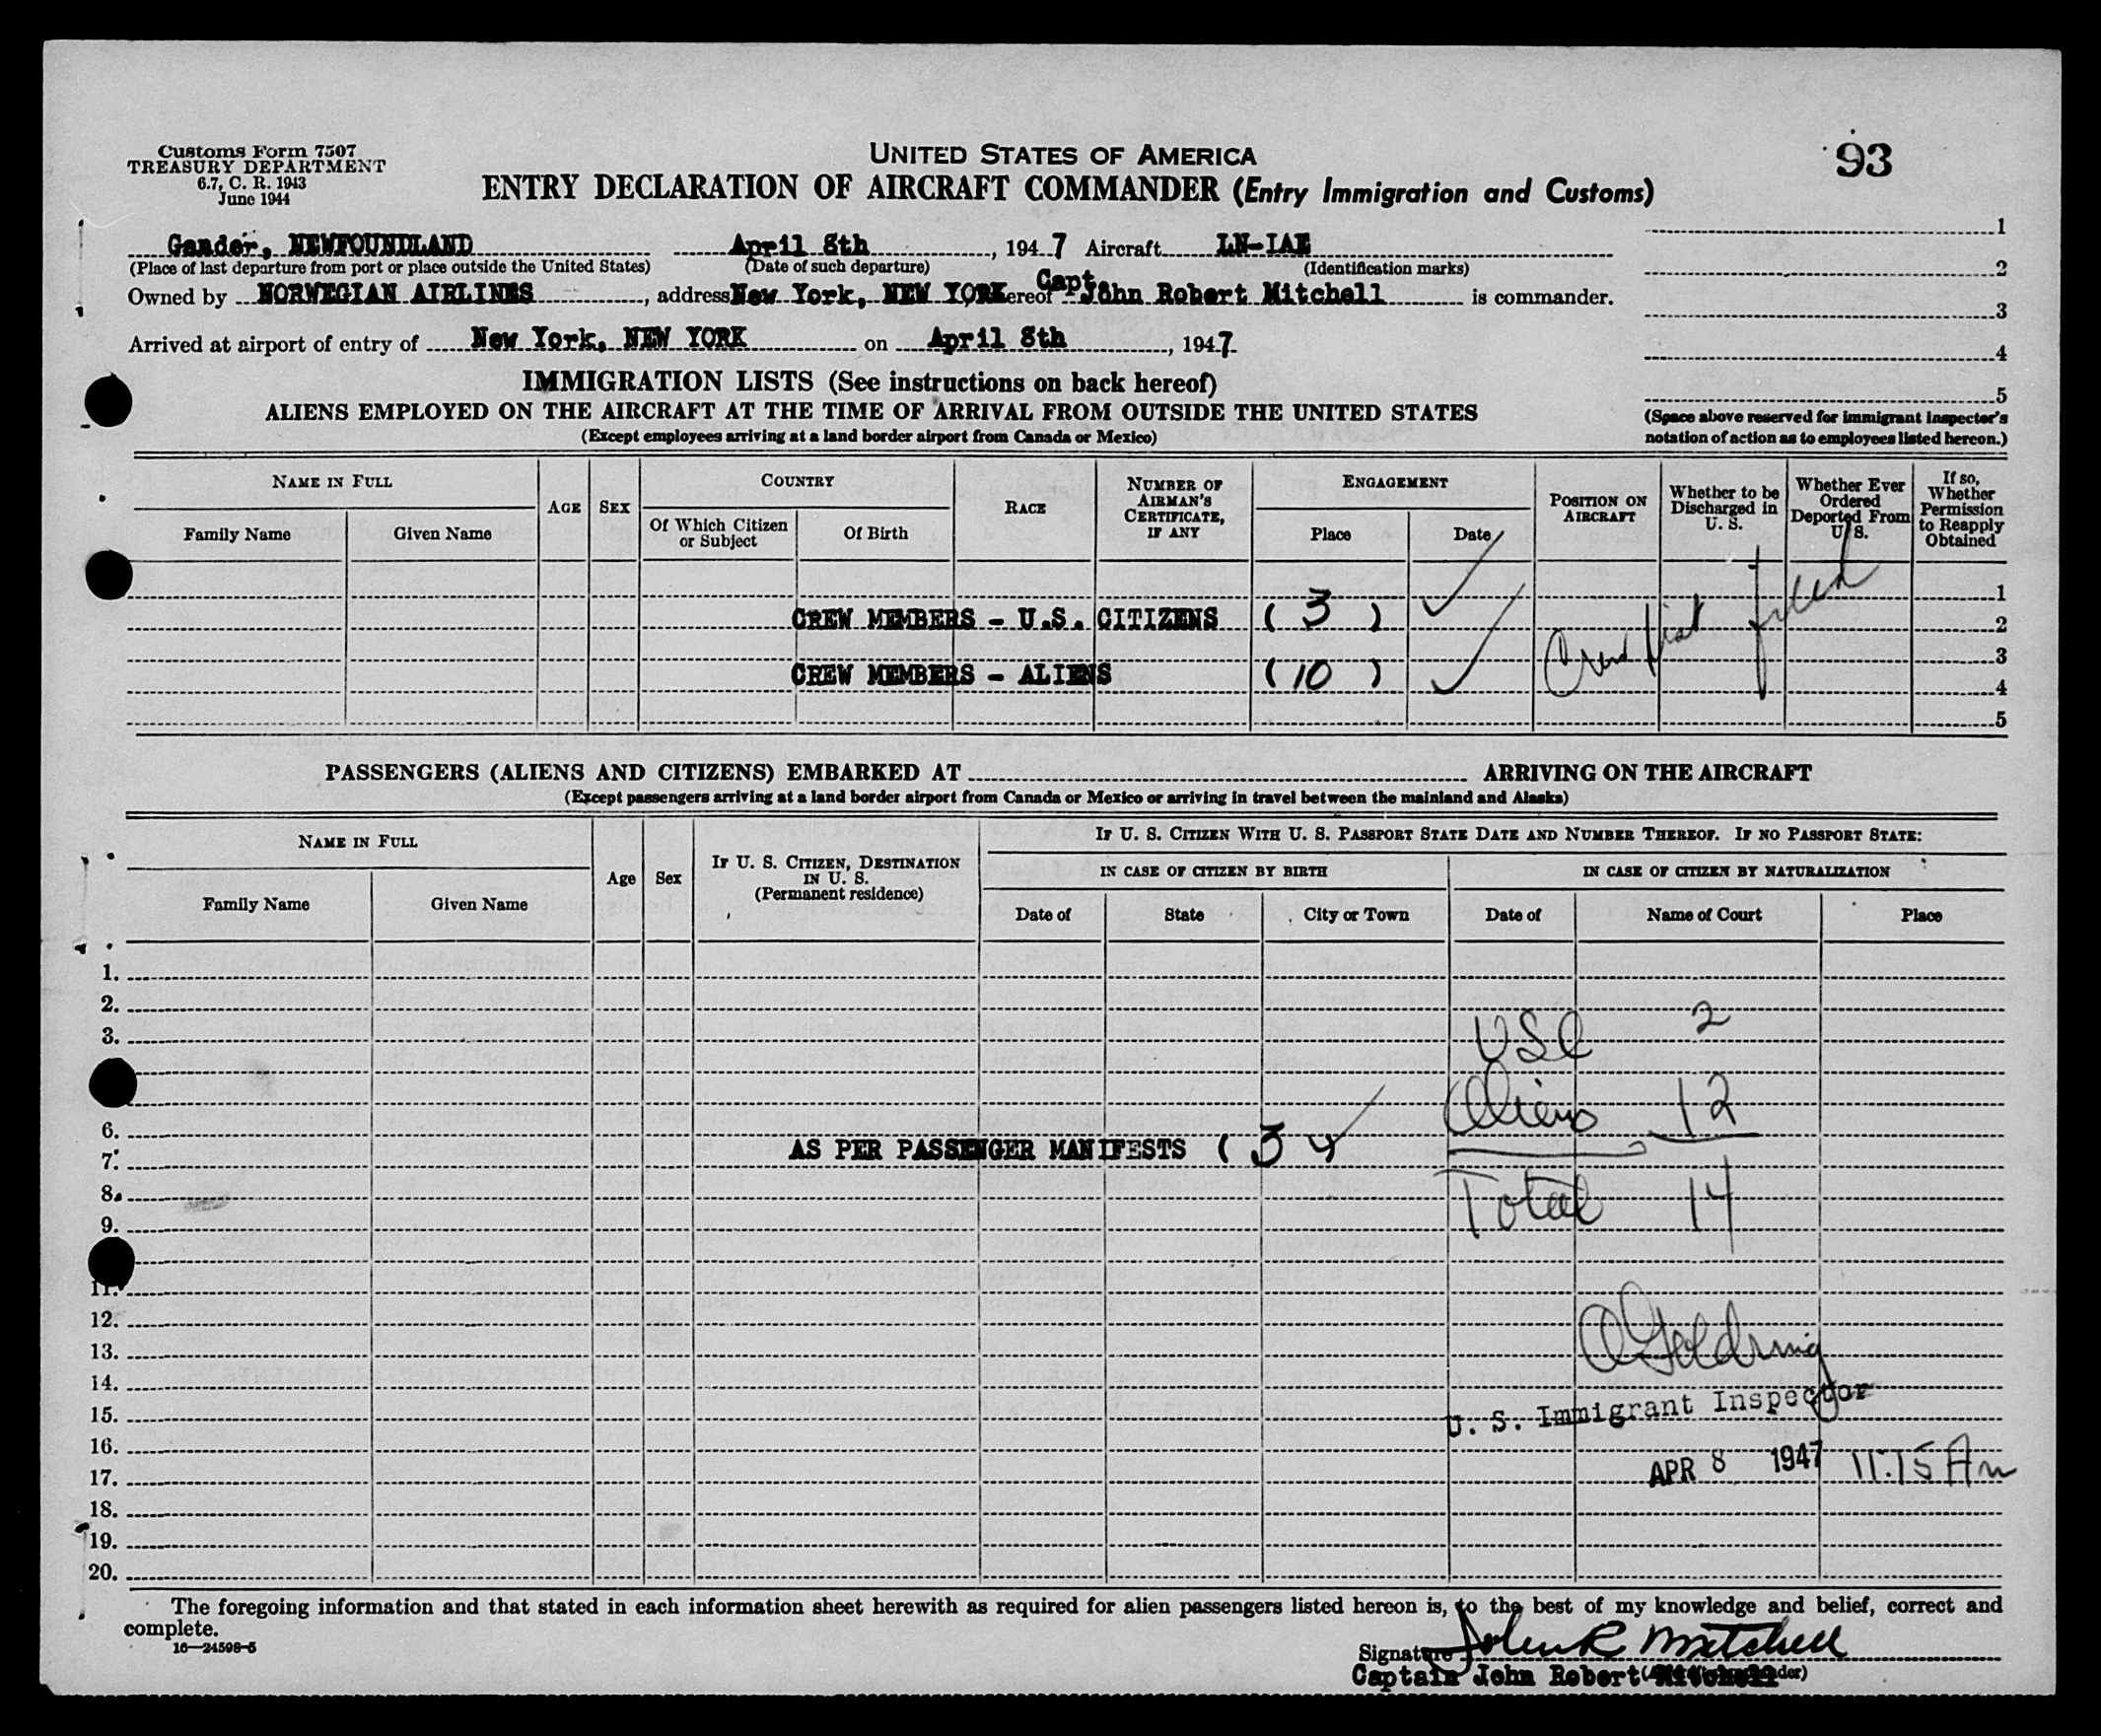 Customs Form 7507
TREASURY DEPARTMENT
6.7, C. R. 1943
June 1944
UNITED STATES OF AMERICA
93
ENTRY DECLARATION OF AIRCRAFT COMMANDER (Entry Immigration and Customs)
Gander, NEWFOUNDLAND April 8th, 1947 Aircraft LN-IAE
(Place of last departure from port or place outside the United States) (Date of such departure) (Identification marks)
Owned by NORWEGIAN AIRLINES, address New York, NEW YORK ereof Capt. John Robert Mitchell is commander.
Arrived at airport of entry of New York, NEW YORK on April 8th, 1947
1
2
3
4
5
(Space above reserved for immigrant inspector's
notation of action as to employees listed hereon.)
IMMIGRATION LISTS (See instructions on back hereof)
ALIENS EMPLOYED ON THE AIRCRAFT AT THE TIME OF ARRIVAL FROM OUTSIDE THE UNITED STATES
(Except employees arriving at a land border airport from Canada or Mexico)
NAME IN FULL
Family Name Given Name
AGE
SEX
COUNTRY
Of Which Citizen
or Subject
Of Birth
RACE
NUMBER OF
AIRMAN'S
CERTIFICATE,
IF ANY
ENGAGEMENT
Place Date
POSITION ON
AIRCRAFT
Whether to be
Discharged in
U. S.
Whether Ever
Ordered
Deported From
U. S.
If so,
Whether
Permission
to Reapply
Obtained
1
CREW MEMBERS - U.S. CITIZENS ( 3 ) 2
Crew list filed
3
CREW MEMBERS - ALIENS ( 10 ) 4
5
PASSENGERS (ALIENS AND CITIZENS) EMBARKED AT ARRIVING ON THE AIRCRAFT
(Except passengers arriving at a land border airport from Canada or Mexico or arriving in travel between the mainland and Alaska)
NAME IN FULL
Family Name Given Name
Age
Sex
IF U. S. CITIZEN, DESTINATION
IN U. S.
(Permanent residence)
IF U. S. CITIZEN WITH U. S. PASSPORT STATE DATE AND NUMBER THEREOF. IF NO PASSPORT STATE:
IN CASE OF CITIZEN BY BIRTH IN CASE OF CITIZEN BY NATURALIZATION
Date of State City or Town Date of Name of Court Place
1.
2.
3. USC 2
Aliens 12
6.
AS PER PASSENGER MANIFESTS ( 34
7.
8. Total 14
9.
11.
12.
13. Goldring
14.
U. S. Immigrant Inspector
15.
16.
APR 8 1947 11:15 Am
17.
18.
19.
20.
The foregoing information and that stated in each information sheet herewith as required for alien passengers listed hereon is, to the best of my knowledge and belief, correct and
complete.
16—24598-5
Signature John R Mitchell
Captain John Robert Mitchell